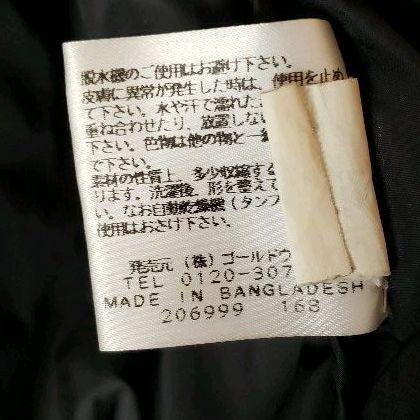 脱水機のご使用はお避け下さい。
皮膚に異常が発生した時は、使用を止め
て下さい。水や汗で濡れた
重ね合わせたり、放置しない
下さい。色物は他の物と一緒
で下さい。
素材の性質上、多少収縮する
ります。洗濯後、形を整えて
い。なお自動乾燥機（タンブ
使用はおさけ下さい。
発売元（株）ゴールドウ
TEL 0120-307
MADE IN BANGLADESH
206999 168